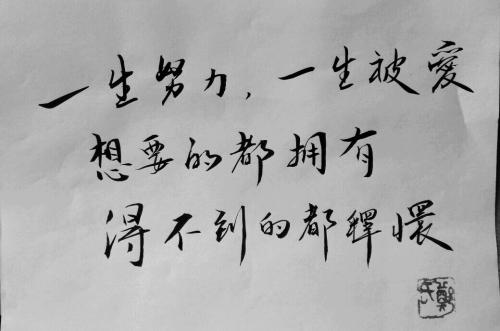 一生努力，一生被爱
想要的都拥有
得不到的都釋懷
鄭氏